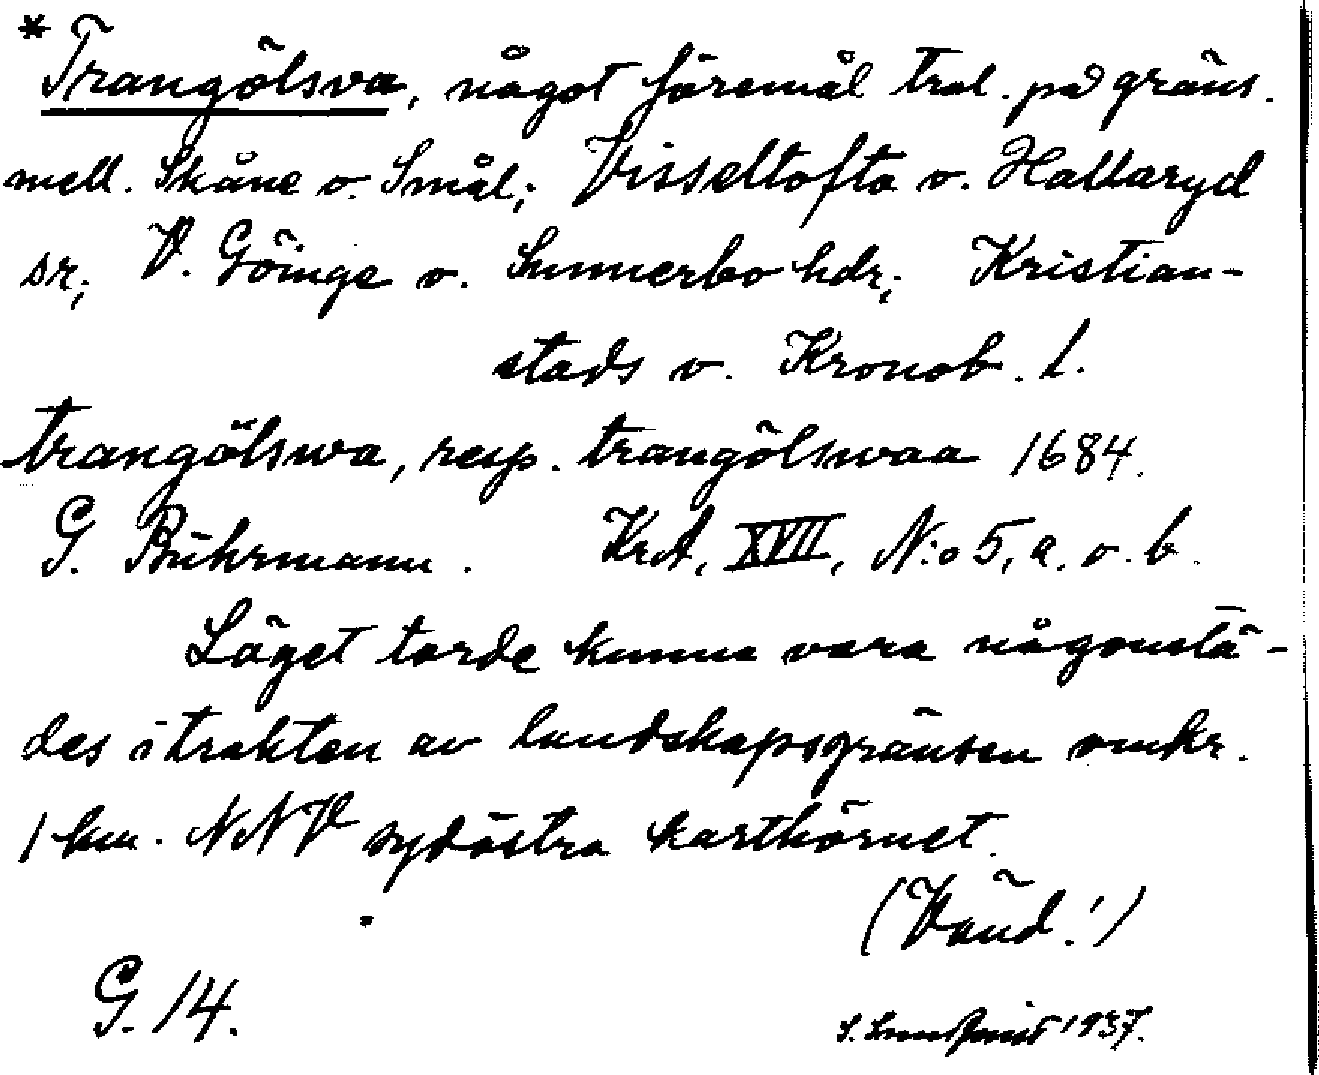 * Trangölsva, något föremål trol. på gräns.
mell. Skåne o. Smål.; Visseltofta o. Hallaryd
sr; V. Göinge o. Sunnerbo hdr; Kristian-
stads o. Kronob. l.
trangölswa, resp. trangölswaa 1684.
G. Buhrmann. KrA, XVII, N:o 5, a. o. b.
Läget torde kunna vara någonstä-
des i trakten av landskapsgränsen omkr.
1 km. NNV sydöstra karthörnet.
(Vänd!)
G. 14.
S. 1937.